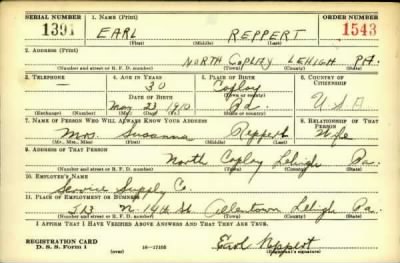 SERIAL NUMBER 1. NAME (Print) ORDER NUMBER
1391 EARL REPPERT 1543
(First) (Middle) (Last)
2. ADDRESS (Print)
NORTH COPLAY LEHIGH PA.
(Number and street or R. F. D. number) (Town) (County) (State)
3. TELEPHONE 4. AGE IN YEARS 5. PLACE OF BIRTH 6. COUNTRY OF CITIZENSHIP
— 30 Coplay
DATE OF BIRTH (Town or county)
May 23 1910 Pa. U.S.A
(Exchange) (Number) (Mo.) (Day) (Yr.) (State or country)
7. NAME OF PERSON WHO WILL ALWAYS KNOW YOUR ADDRESS 8. RELATIONSHIP OF THAT PERSON
Mrs. Susanna Reppert Wife
(Mr., Mrs., Miss) (First) (Middle) (Last)
9. ADDRESS OF THAT PERSON
North Coplay Lehigh Pa.
(Number and street or R. F. D. number) (Town) (County) (State)
10. EMPLOYER'S NAME
Service Supply Co.
11. PLACE OF EMPLOYMENT OR BUSINESS
N. 14th St Allentown Lehigh Pa.
(Number and street or R. F. D. number) (Town) (County) (State)
I AFFIRM THAT I HAVE VERIFIED ABOVE ANSWERS AND THAT THEY ARE TRUE.
REGISTRATION CARD
D. S. S. Form 1 (over) 16—17105 Earl Reppert
(Registrant's signature)